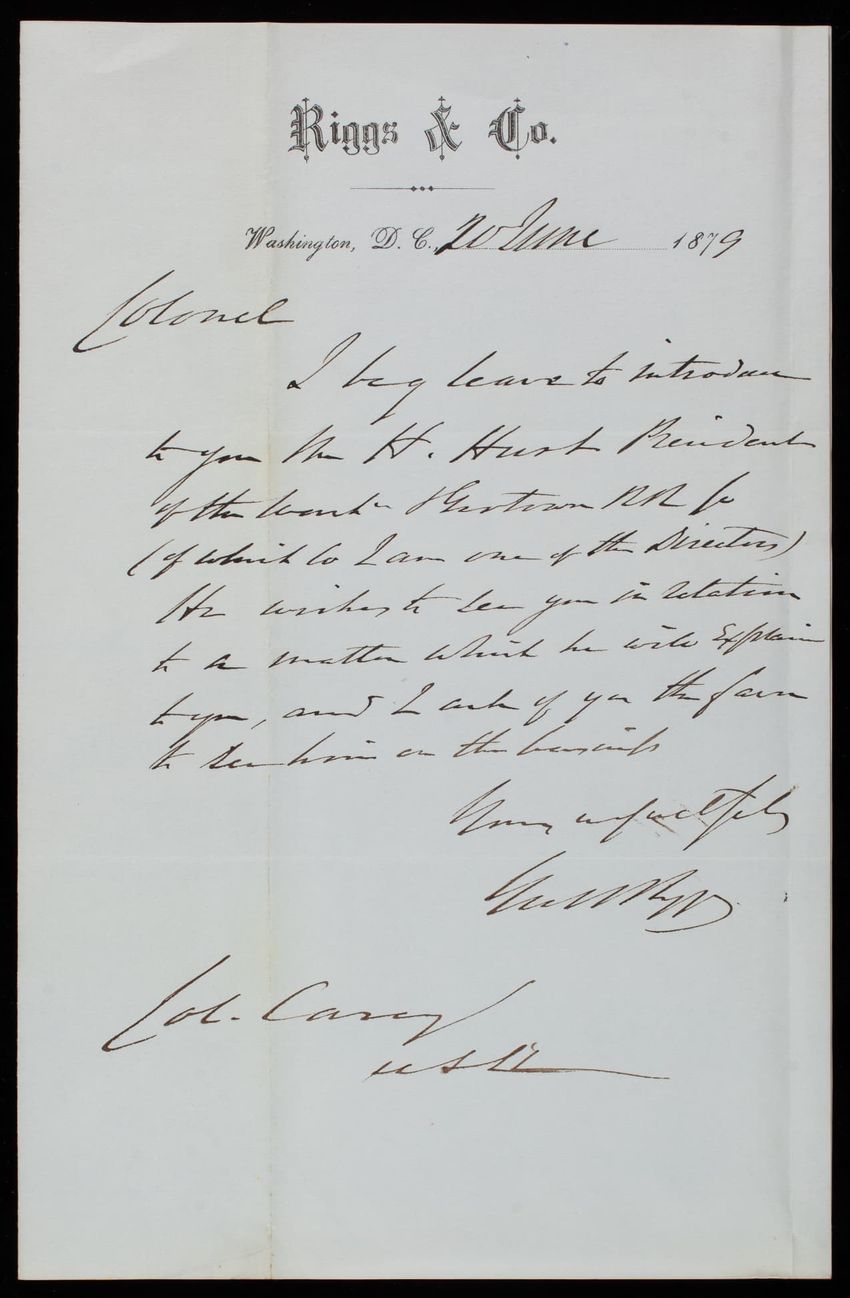 Riggs & Co.
Washington, D. C., 20 June 1879
Colonel
I beg leave to introduce
to you Mr H. Hurt President
of the Washn & Getown RR Co
(of which Co I am one of the Directors)
He wishes to see you in relation
to a matter which he will explain
to you, and I ask of you the favor
to see him on the business
Yours respectfully
Geo W Riggs
Col. Casey